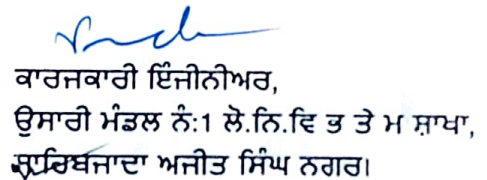 ਕਾਰਜਕਾਰੀ ਇੰਜੀਨੀਅਰ,
ਉਸਾਰੀ ਮੰਡਲ ਨੰ:1 ਲੋ.ਨਿ.ਵਿ ਭ ਤੇ ਮ ਸ਼ਾਖਾ,
ਸ਼ਾਹਿਬਜਾਦਾ ਅਜੀਤ ਸਿੰਘ ਨਗਰ।